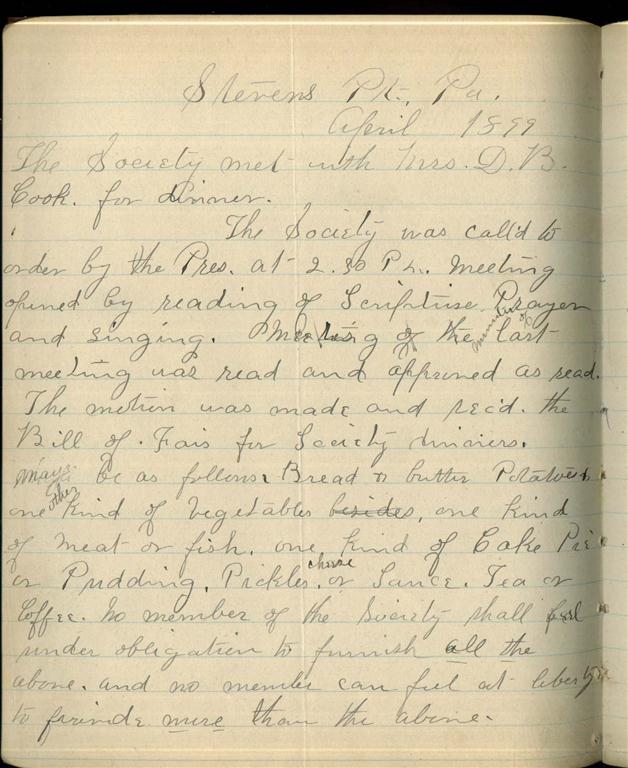 Stevens Pt., Pa.
April 1899
The Society met with Mrs. D. B.
Cook. for dinner.
The Society was call'd to
order by the Pres. at 2.30 P.M. Meeting
opened by reading of Scripture Prayer
and singing. Meeting of the minutes of last
meeting was read and approved as read.
The motion was made and sec'd. the
Bill of. Fair for Society dinners.
may be as follows. Bread & butter Potatoes &
one other kind of vegetables besides, one kind
of meat or fish. one kind of Cake Pie
or Pudding. Pickles. cheese or Sauce. Tea or
Coffee. No member of the Society shall feel
under obligation to furnish all the
above. and no member can feel at liberty
to provide more than the above.